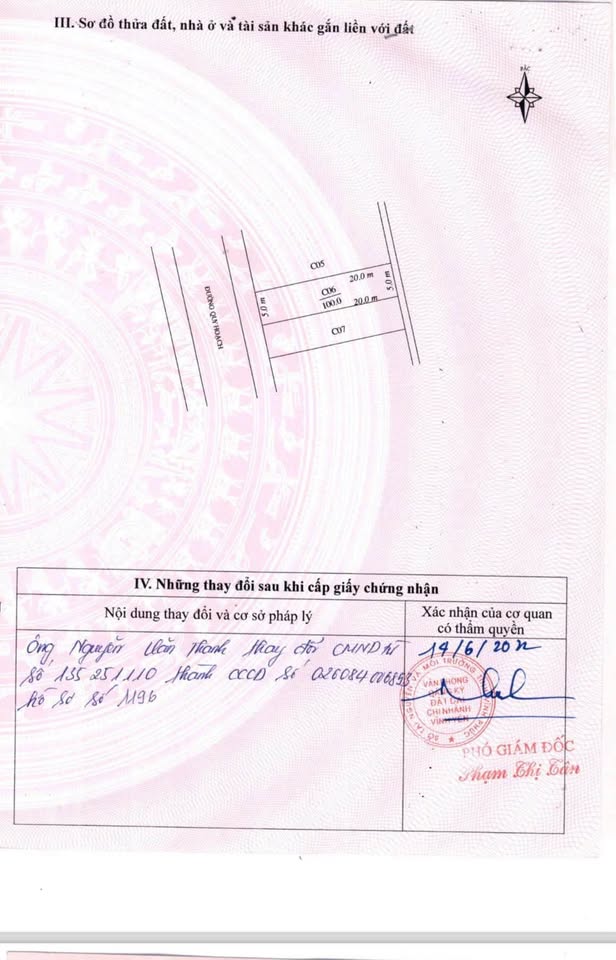 III. Sơ đồ thửa đất, nhà ở và tài sản khác gắn liền với đất
BẮC
C05
20.0 m
5.0 m
C06
100.0
20.0 m
5.0 m
C07
ĐƯỜNG QUY HOẠCH
IV. Những thay đổi sau khi cấp giấy chứng nhận
Nội dung thay đổi và cơ sở pháp lý
Xác nhận của cơ quan
có thẩm quyền
Ông Nguyễn Văn Thanh thay đổi CMND từ
số 135 251110 thành CCCD số
hồ sơ số 1196
14/6/20
SỞ TÀI NGUYÊN VÀ MÔI TRƯỜNG TỈNH VĨNH PHÚC
VĂN PHÒNG
ĐĂNG KÝ
ĐẤT ĐAI
CHI NHÁNH
VĨNH YÊN
PHÓ GIÁM ĐỐC
Phạm Thị Tân